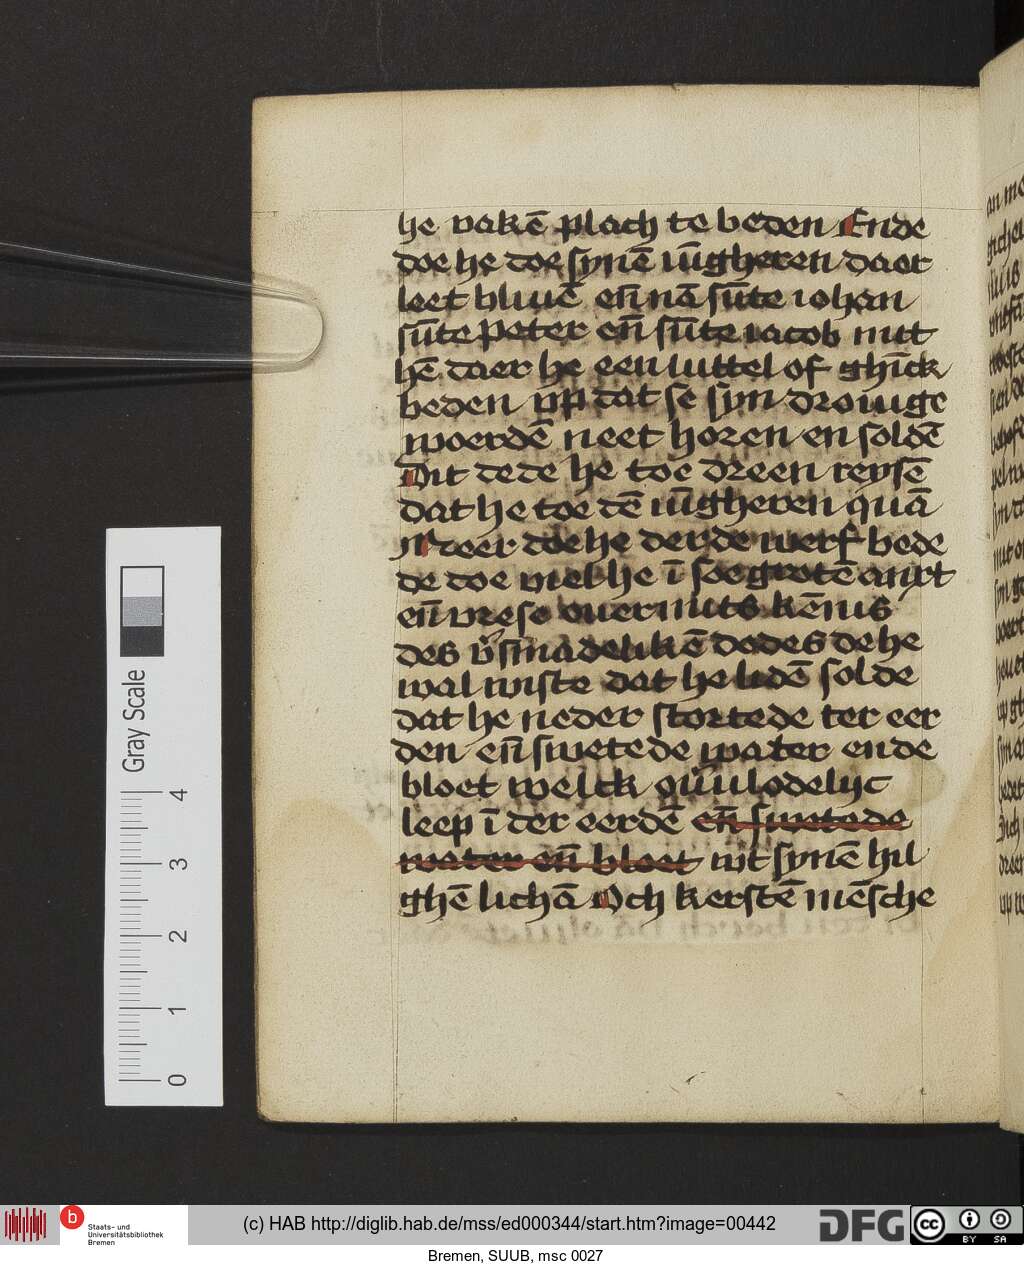 he vakē plach te beden Ende
doe he toe synē iūgheren daer
leet bliuē eñ nā sūte iohan
sūte peter eñ sūte iacob mit
hē daer he een luttel of ghīck
beden vp dat se syn drouige
woerdē neet horen en soldē
Dit dede he toe dreen reysē
dat he toe dē iūgheren quā
Mer doe he derde werf bede
de doe viel he ī soe grotē anxt
eñ vrese ouermits kēnis
des v'smadelikē dodes de he
wal wiste dat he lidē solde
dat he neder stortede ter eer
den eñ swetede water ende
bloet welck ou'ulodelijc
leep ī der eerdē eñ swetede
water eñ bloet wt synē hil
ghē lichā Och kerstē mēsche
Gray Scale
0 1 2 3 4
b Staats- und
Universitätsbibliothek
Bremen
(c) HAB http://diglib.hab.de/mss/ed000344/start.htm?image=00442
DFG
cc BY SA
Bremen, SUUB, msc 0027